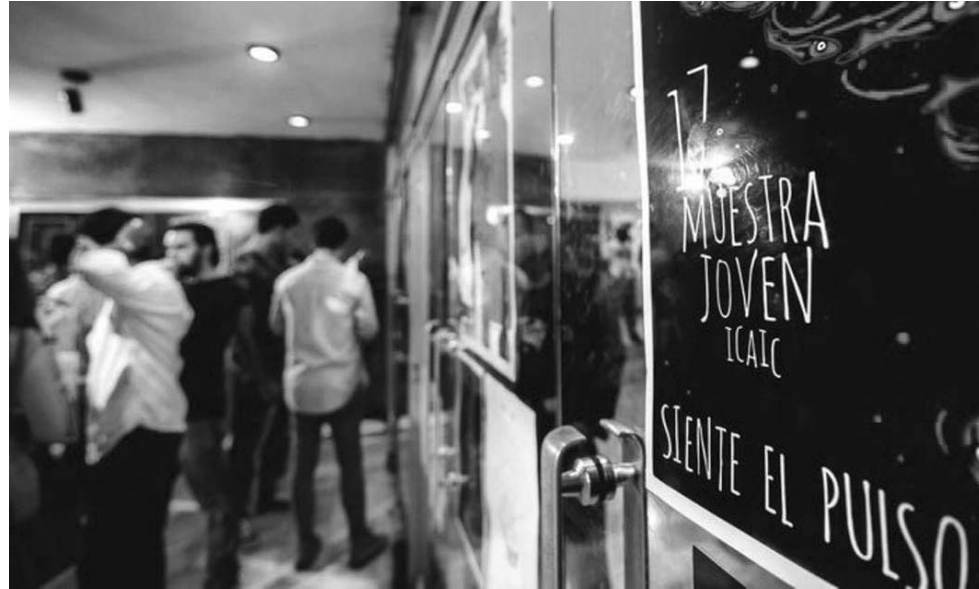 17
MUESTRA
JOVEN
ICAIC
SIENTE EL PULSO